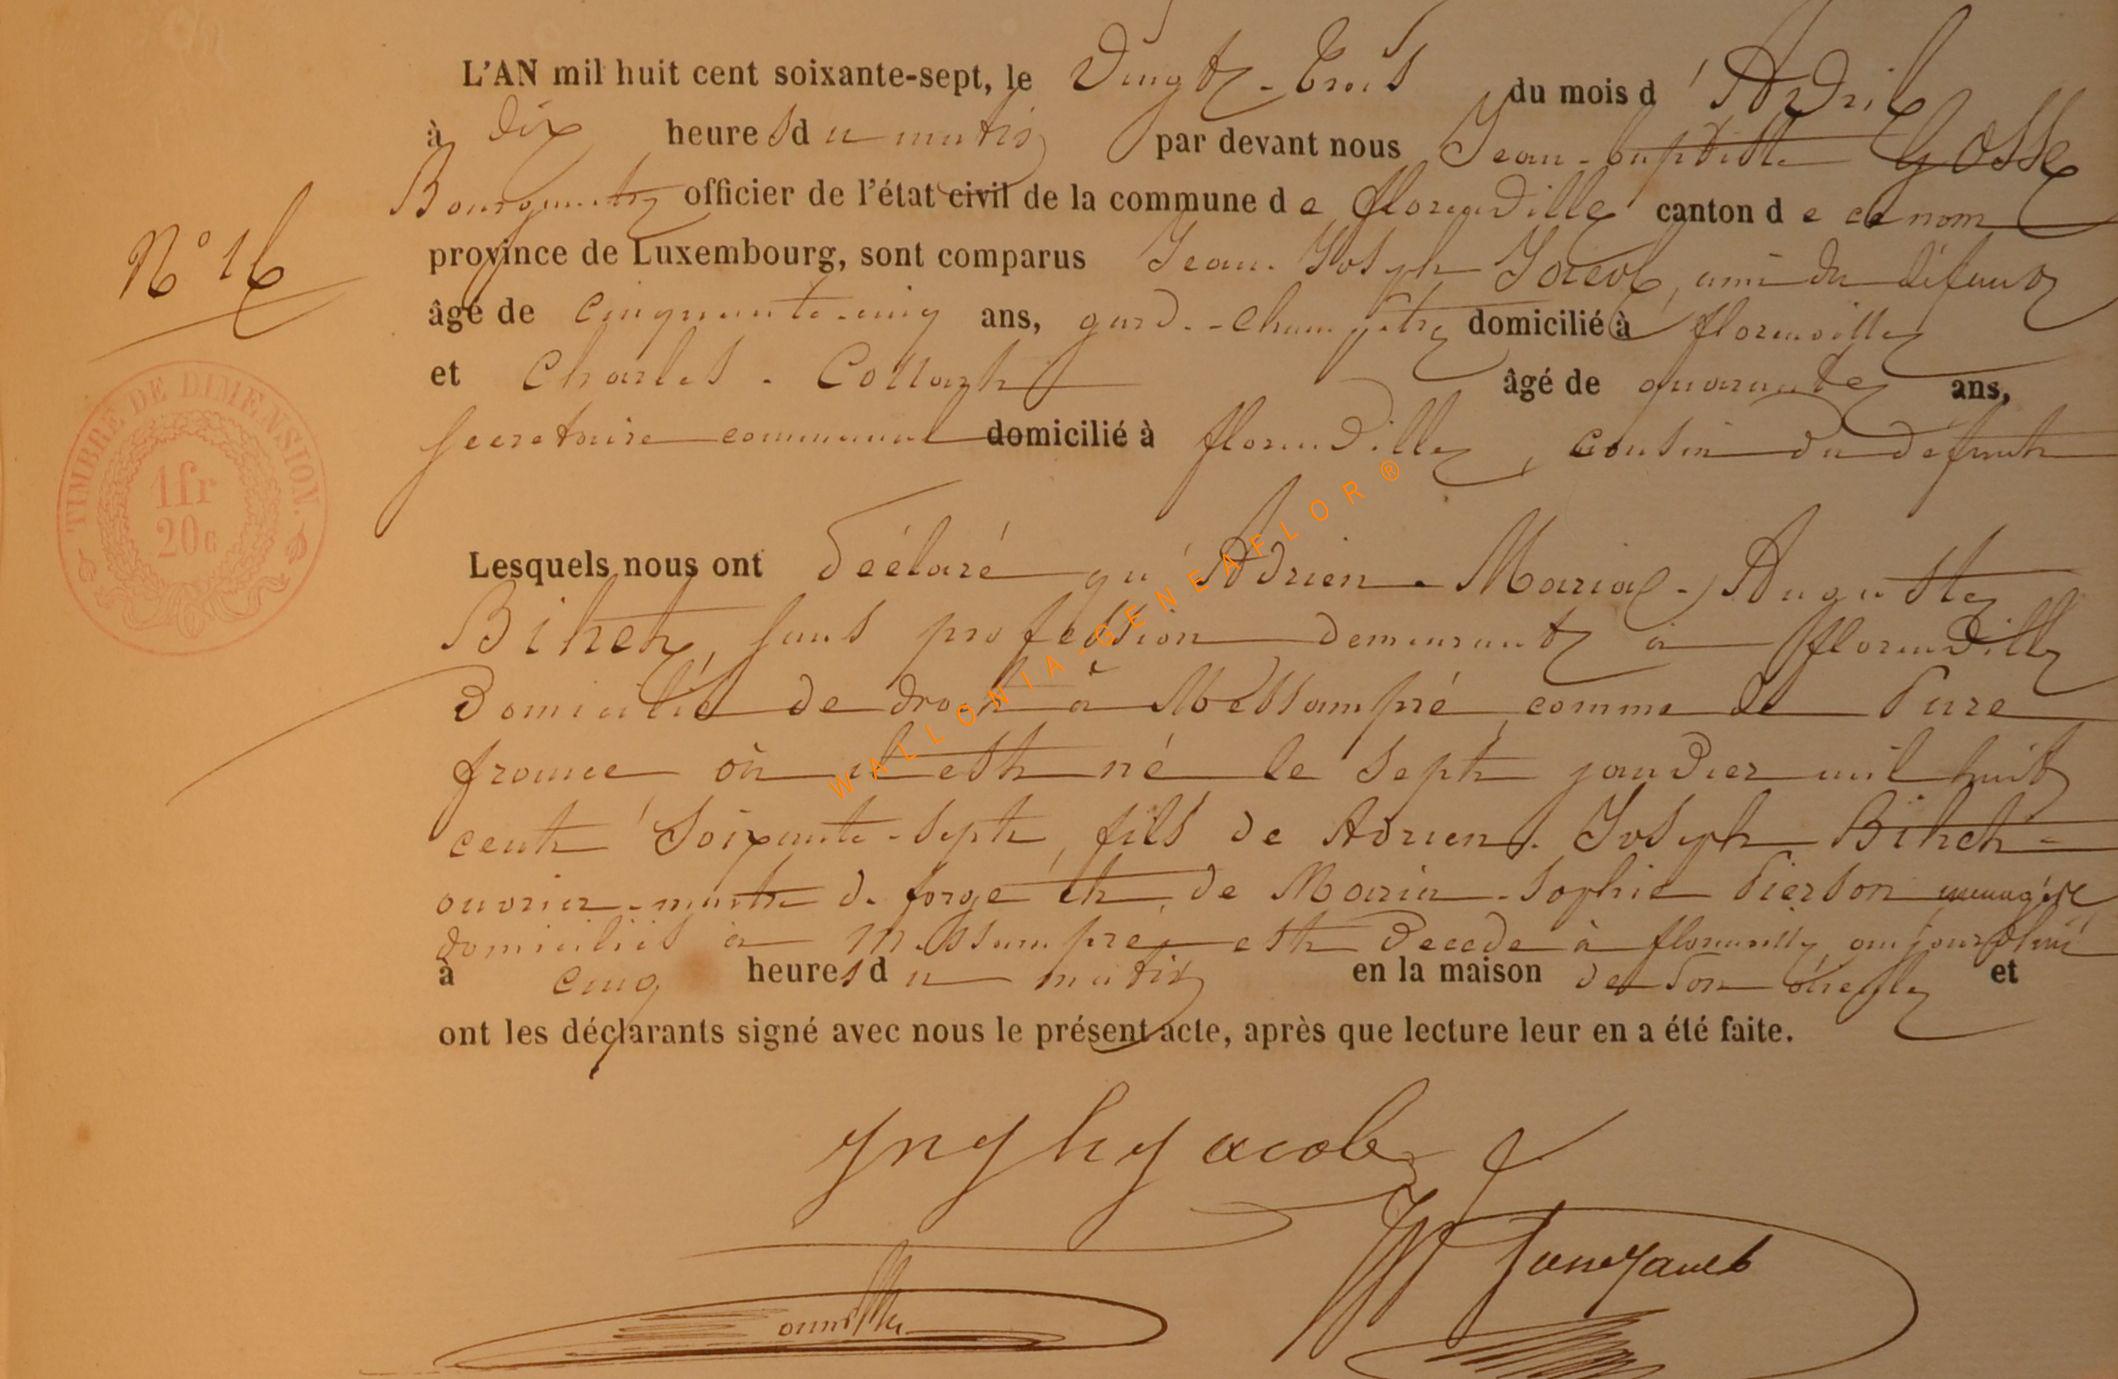 L'AN mil huit cent soixante-sept, le Vingt-trois du mois d'Avril
à Dix heures du matin par devant nous Jean-baptiste Gosse
Bourgmestre officier de l'état civil de la commune de florenville canton de ce nom
province de Luxembourg, sont comparus Jean-Joseph Jacob, ami du défunt
N° 16
âgé de cinquante-cinq ans, garde-champêtre domicilié à florenville
et Charles Collart âgé de quarante ans,
secretaire communal domicilié à florenville, cousin du défunt
TIMBRE DE DIMENSION.
1fr
20c
Lesquels nous ont déclaré qu'Adrien-Marie-Auguste
Bihet, sans profession demeurant à florenville
Domicilié de droit à Messampré comme de Pure
france où il est né le sept janvier mil huit
cent soixante-sept, fils de Adrien-Joseph Bihet
ouvrier-maître de forge et de Maria-Sophie Pierson menagère
domiciliés à Messampré est Decede à florenville aujourd'hui
à cinq heures du matin en la maison de son et
ont les déclarants signé avec nous le présent acte, après que lecture leur en a été faite.
WALLONIA-GENEAFLOR®